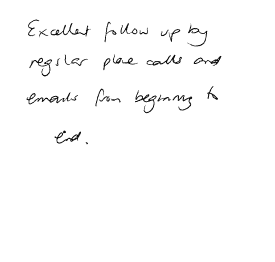 Excellent follow up by
regular phone calls and
emails from beginning to
end.